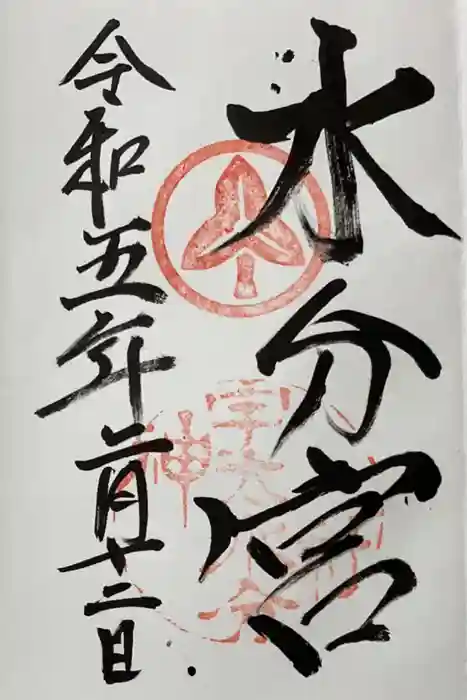 水分宮
令和五年二月廿二日